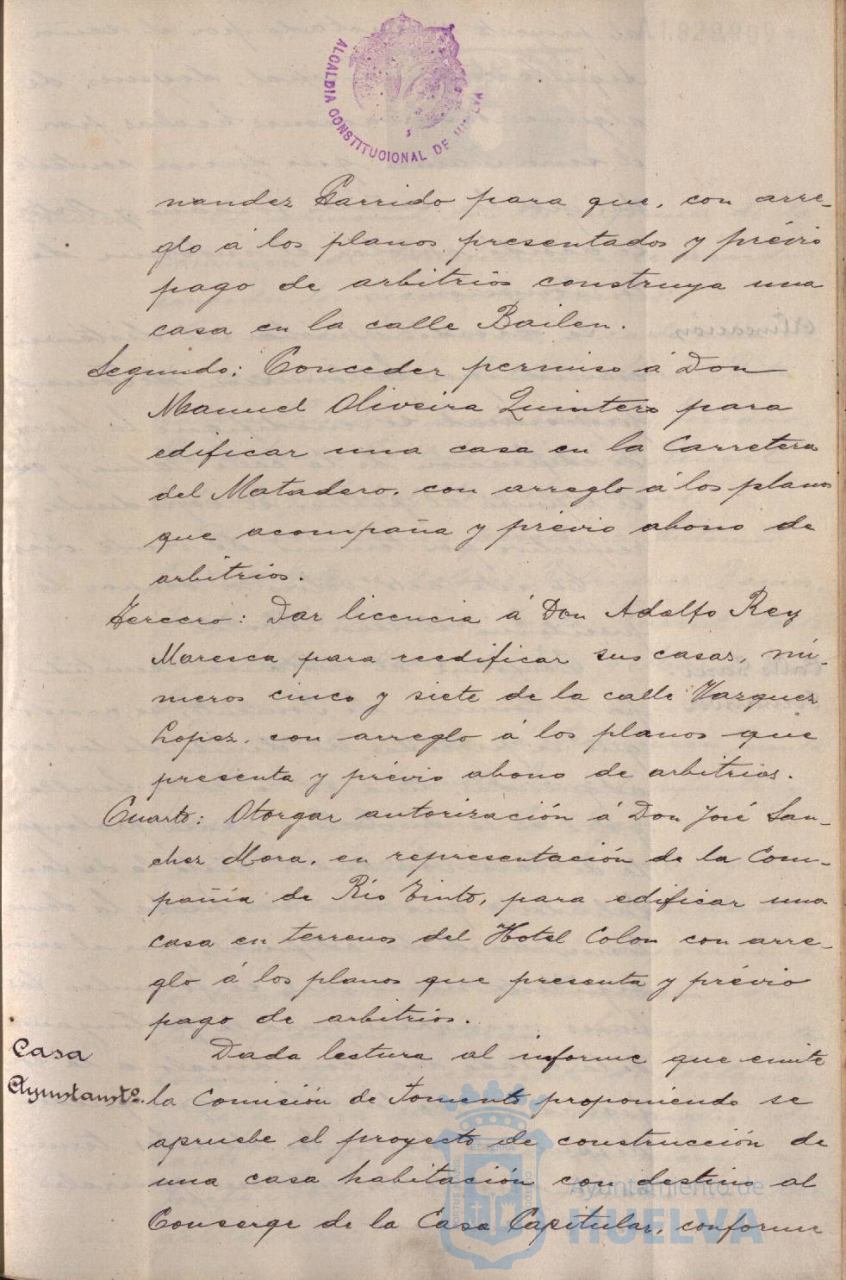 ALCALDIA CONSTITUCIONAL DE HUELVA
nandez Garrido para que, con arre-
glo á los planos presentados y prévio
pago de arbitrios construya una
casa en la calle Bailen.
Segundo: Conceder permiso á Don
Manuel Oliveira Quintero para
edificar una casa en la Carretera
del Matadero, con arreglo á los planos
que acompaña y prévio abono de
arbitrios.
Tercero: Dar licencia á Don Adolfo Rey
Maresca para reedificar sus casas, nú-
meros cinco y siete de la calle Vazquez
Lopez, con arreglo á los planos que
presenta y prévio abono de arbitrios.
Cuarto: Otorgar autorización á Don José San-
chez Mora, en representación de la Com-
pañía de Río Tinto, para edificar una
casa en terrenos del Hotel Colon con arre-
glo á los planos que presenta y prévio
pago de arbitrios.
Casa
Ayuntamto.
Dada lectura al informe que emite
la Comisión de Fomento proponiendo se
apruebe el proyecto de construcción de
una casa habitación con destino al
Conserge de la Casa Capitular, conforme
Ayuntamiento de
HUELVA